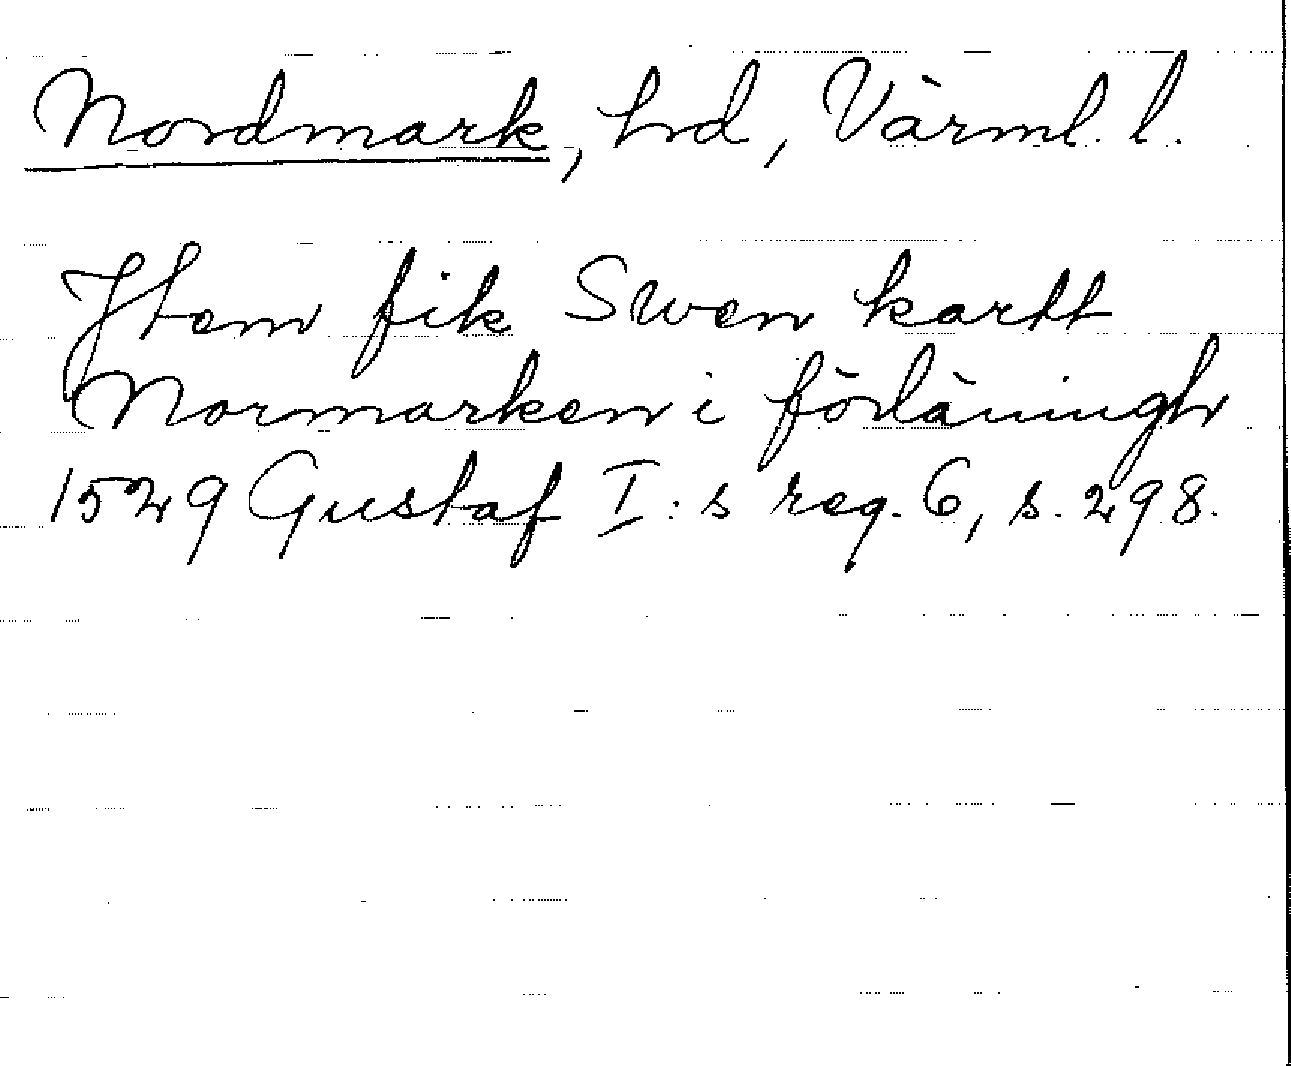 Nordmark, hd, Värml. l.
Jtem fik Swen kartt
Normarken i förläningh
1529 Gustaf I:s reg. 6, s. 298.